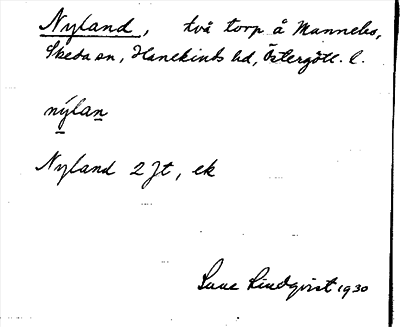 Nyland, två torp å Mannebo,
Skeda sn, Hanekinds hd, Östergötl. l.
nýlan
Nyland 2 Jt, ek
Sune Lindqvist 1930